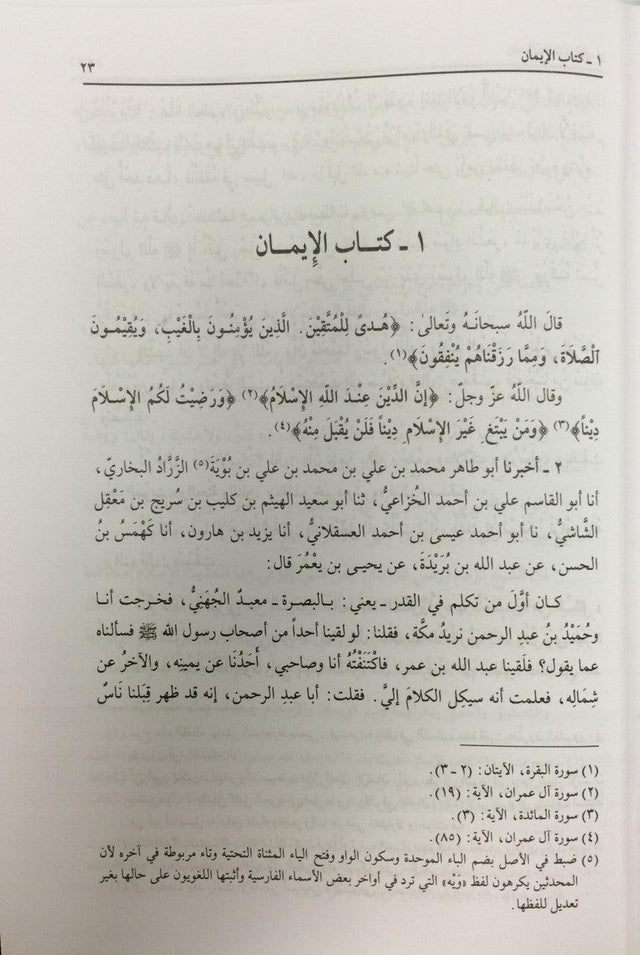 ١ ـ كتاب الإيمان
٢٣
١ ـ كتاب الإِيمان
قالَ اللّهُ سبحانَهُ وتَعالى: ﴿هُدىً لِلْمُتَّقِيْنَ. الَّذِيْنَ يُؤْمِنُونَ بِالْغَيْبِ، وَيُقِيْمُونَ
الصَّلاَةَ، وَمِمَّا رَزَقْنَاهُمْ يُنْفِقُونَ﴾(١).
وقال اللّهُ عزّ وجلّ: ﴿إنَّ الدِّيْنَ عِنْدَ اللّهِ الإِسْلاَمُ﴾(٢) ﴿وَرَضِيْتُ لَكُمُ الإِسْلاَمَ
دِيْناً﴾(٣) ﴿وَمَنْ يَبْتَغِ غَيْرَ الإِسْلَامِ دِيْناً فَلَنْ يُقْبَلَ مِنْهُ﴾(٤).
٢ ـ أخبرنا أبو طاهر محمد بن علي بن محمد بن علي بن بُوْيَةَ(٥) الزَّرَّادُ البخاريّ،
أنا أبو القاسم علي بن أحمد الخُزاعيُّ، ثنا أبو سعيد الهيثم بن كليب بن سُريج بن مَعْقِل
الشَّاشيُّ، نا أبو أحمد عيسى بن أحمد العسقلانيُّ، أنا يزيد بن هارون، أنا كَهْمَسُ بنُ
الحسن، عن عبد الله بن بُرَيْدَةَ، عن يحيى بن يعْمُرَ قال:
كان أوَّلَ من تكلم في القدر ـ يعني: بالبصرة ـ معبدٌ الجُهَنِيُّ، فخرجت أنا
وحُمَيْدُ بنُ عبدِ الرحمن نريدُ مكَّة، فقلنا: لو لقينا أحداً من أصحاب رسول الله ﷺ فسألناه
عما يقول؟ فلَقينا عبد الله بن عمر، فاكْتَنَفْتُهُ أنا وصاحبي، أَحَدُنَا عن يمينه، والآخرُ عن
شِمَالِه، فعلمت أنه سيكِل الكلامَ إليَّ. فقلت: أبا عبدِ الرحمن، إنه قد ظهر قِبَلنا نَاسٌ
(١) سورة البقرة، الآيتان: (٢ ـ ٣).
(٢) سورة آل عمران، الآية: (١٩).
(٣) سورة المائدة، الآية: (٣).
(٤) سورة آل عمران، الآية: (٨٥).
(٥) ضبط في الأصل بضم الباء الموحدة وسكون الواو وفتح الياء المثناة التحتية وتاء مربوطة في آخره لأن
المحدثين يكرهون لفظ «وَيْه» التي ترد في أواخر بعض الأسماء الفارسية وأثبتها اللغويون على حالها بغير
تعديل للفظها.